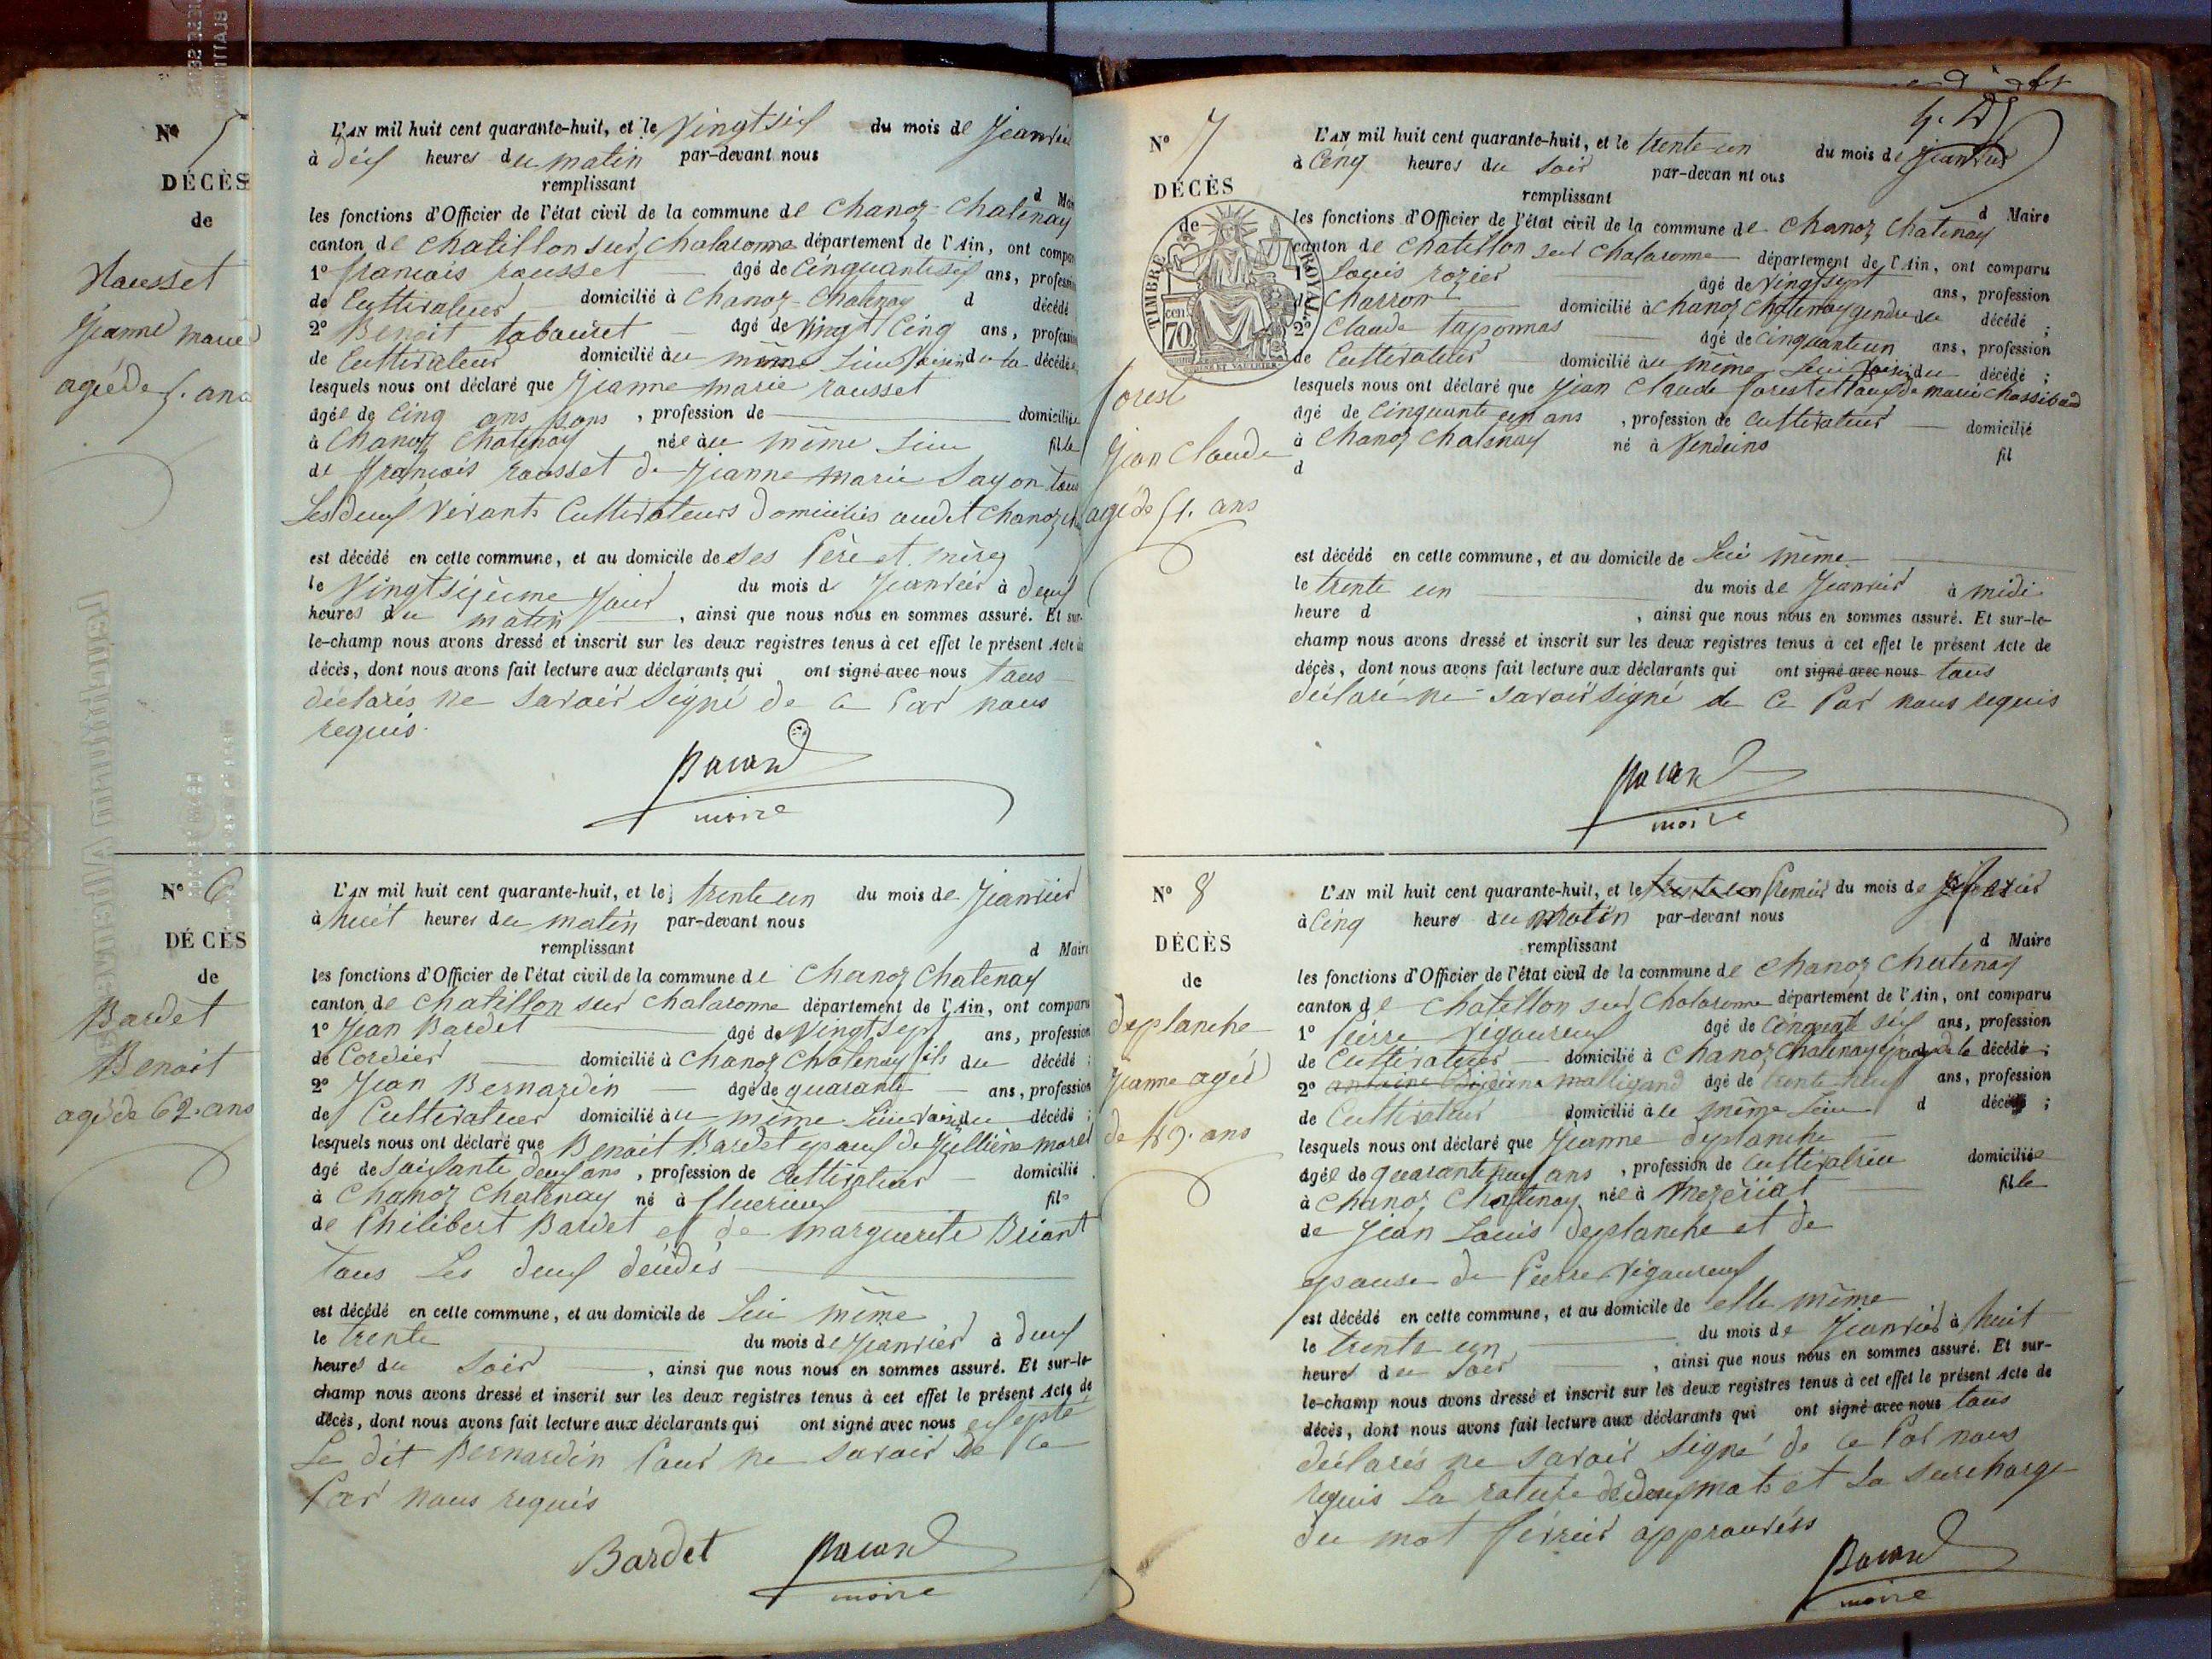 N° 5
DÉCÈS
de
Rousset
Jeanne marie
agée de 5. ans
L'AN mil huit cent quarante-huit, et le Vingtsix du mois de Janvier
à dix heures du matin par-devant nous
remplissant
d Maire
les fonctions d'Officier de l'état civil de la commune de Chanoz-Chatenay
canton de Chatillon sur Chalaronne département de l'Ain, ont comparu
1° francois rousset âgé de Cinquantesix ans, profession
de Cultivateur domicilié à Chanoz-Chatenay d décédé
2° Benoit tabouret âgé de Vingt Cinq ans, profession
de Cultivateur domicilié au même Lieu Voisin de la décédée,
lesquels nous ont déclaré que Jeanne marie rousset
âgée de Cinq ans sans, profession de domiciliée
à Chanoz Chatenay née au même Lieu fille
de françois rousset de Jeanne marie Sayon tous
Les deux Vivants Cultivateurs domiciliés audit Chanoz
est décédé en cette commune, et au domicile de ses Père et mère
le Vingtsixième Jour du mois de Janvier à deux
heures du matin, ainsi que nous nous en sommes assuré. Et sur-
le-champ nous avons dressé et inscrit sur les deux registres tenus à cet effet le présent Acte de
décès, dont nous avons fait lecture aux déclarants qui ont signé avec nous tous
déclarés ne savoir signé de ce Par nous
requis.
pacand
maire
N° 6
DÉCÈS
de
Bardet
Benoit
agé de 62. ans
L'AN mil huit cent quarante-huit, et le trente un du mois de Janvier
à huit heures du matin par-devant nous
remplissant
d Maire
les fonctions d'Officier de l'état civil de la commune de Chanoz Chatenay
canton de Chatillon sur Chalaronne département de l'Ain, ont comparu
1° Jean Bardet âgé de Vingt Sept ans, profession
de Cordier domicilié à Chanoz Chatenay fils du décédé;
2° Jean Bernardin âgé de quarante ans, profession
de Cultivateur domicilié au même Lieu Voisin du décédé;
lesquels nous ont déclaré que Benoit Bardet epoux de Jullienne morel
âgé de soixante deux ans, profession de Cultivateur domicilié
à Chanoz Chatenay né à fleurieux fils
de Philibert Bardet et de Marguerite Briant
tous Les deux décédés
est décédé en cette commune, et au domicile de Lui même
le trente du mois de Janvier à deux
heures du soir, ainsi que nous nous en sommes assuré. Et sur-le-
champ nous avons dressé et inscrit sur les deux registres tenus à cet effet le présent Acte de
décès, dont nous avons fait lecture aux déclarants qui ont signé avec nous excepté
Le dit Bernardin Pour ne savoir de ce
Par nous requis
Bardet pacand
maire
N° 7
DÉCÈS
de
TIMBRE ROYAL
70 cen
forest
Jean Claude
agé de 51. ans
L'AN mil huit cent quarante-huit, et le trente un du mois de Janvier
à Cinq heures du soir par-devan nt ous
remplissant
d Maire
les fonctions d'Officier de l'état civil de la commune de Chanoz Chatenay
canton de Chatillon sur Chalaronne département de l'Ain, ont comparu
1° Louis rozier âgé de Vingtsept ans, profession
de Charron domicilié à Chanoz Chatenay gendre du décédé;
2° Claude taponnas âgé de Cinquanteun ans, profession
de Cultivateur domicilié au même Lieu Voisin du décédé;
lesquels nous ont déclaré que Jean Claude forest Epoux de marie Chassibaud
âgé de Cinquante un ans, profession de Cultivateur domicilié
à Chanoz Chatenay né à Vendeins fil
d
est décédé en cette commune, et au domicile de Lui même
le trente un du mois de Janvier à midi
heure d, ainsi que nous nous en sommes assuré. Et sur-le-
champ nous avons dressé et inscrit sur les deux registres tenus à cet effet le présent Acte de
décès, dont nous avons fait lecture aux déclarants qui ont signé avec nous tous
déclaré ne savoir signé de ce Par nous requis
pacand
maire
N° 8
DÉCÈS
de
deplanche
Jeanne agée
de 49. ans
L'AN mil huit cent quarante-huit, et le trente un Premier du mois de fevrier
à Cinq heures du matin par-devant nous
remplissant
d Maire
les fonctions d'Officier de l'état civil de la commune de Chanoz Chatenay
canton de Chatillon sur Chalaronne département de l'Ain, ont comparu
1° Pierre Vigoureux âgé de Cinquante six ans, profession
de Cultivateur domicilié à Chanoz Chatenay epoux de la décédée;
2° malligand âgé de trente neuf ans, profession
de Cultivateur domicilié à le même Lieu d décédé;
lesquels nous ont déclaré que Jeanne deplanche
âgée de quarante neuf ans, profession de Cultivatrice domiciliée
à Chanoz Chatenay née à Mezériat fille
de Jean Louis deplanche et de
epouse de Pierre Vigoureux
est décédé en cette commune, et au domicile de elle même
le trente un du mois de Janvier à huit
heures du soir, ainsi que nous nous en sommes assuré. Et sur-
le-champ nous avons dressé et inscrit sur les deux registres tenus à cet effet le présent Acte de
décès, dont nous avons fait lecture aux déclarants qui ont signé avec nous tous
déclarés ne savoir signé de ce Par nous
requis La rature de deux mots et La surcharge
du mot fevrier approuvés
pacand
maire